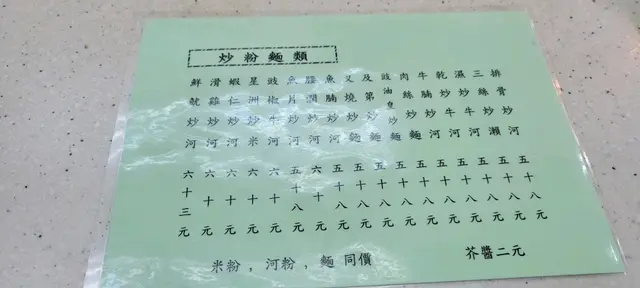 炒粉麵類
排骨炒河 五十八元
三絲炒瀨 五十八元
濕炒牛河 五十八元
乾炒牛河 五十八元
牛腩炒河 五十八元
肉絲炒麵 五十八元
豉油皇炒麵 五十八元
及第炒麵 五十八元
叉燒炒麵 五十八元
魚腩炒河 五十八元
腰潤炒河 六十元
魚片炒河 五十八元
豉椒牛河 六十元
星洲炒米 六十元
蝦仁炒河 六十元
滑雞炒河 六十元
鮮魷炒河 六十三元
米粉，河粉，麵 同價
芥醬二元